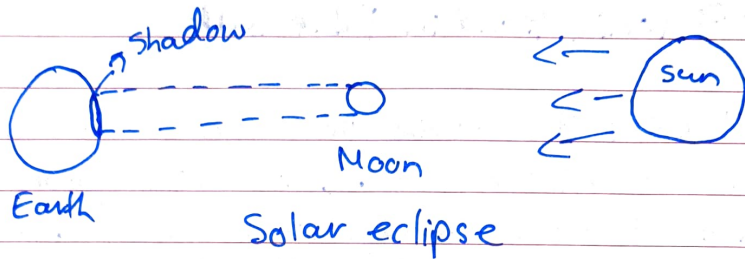 Shadow
Sun
Moon
Earth
Solar eclipse